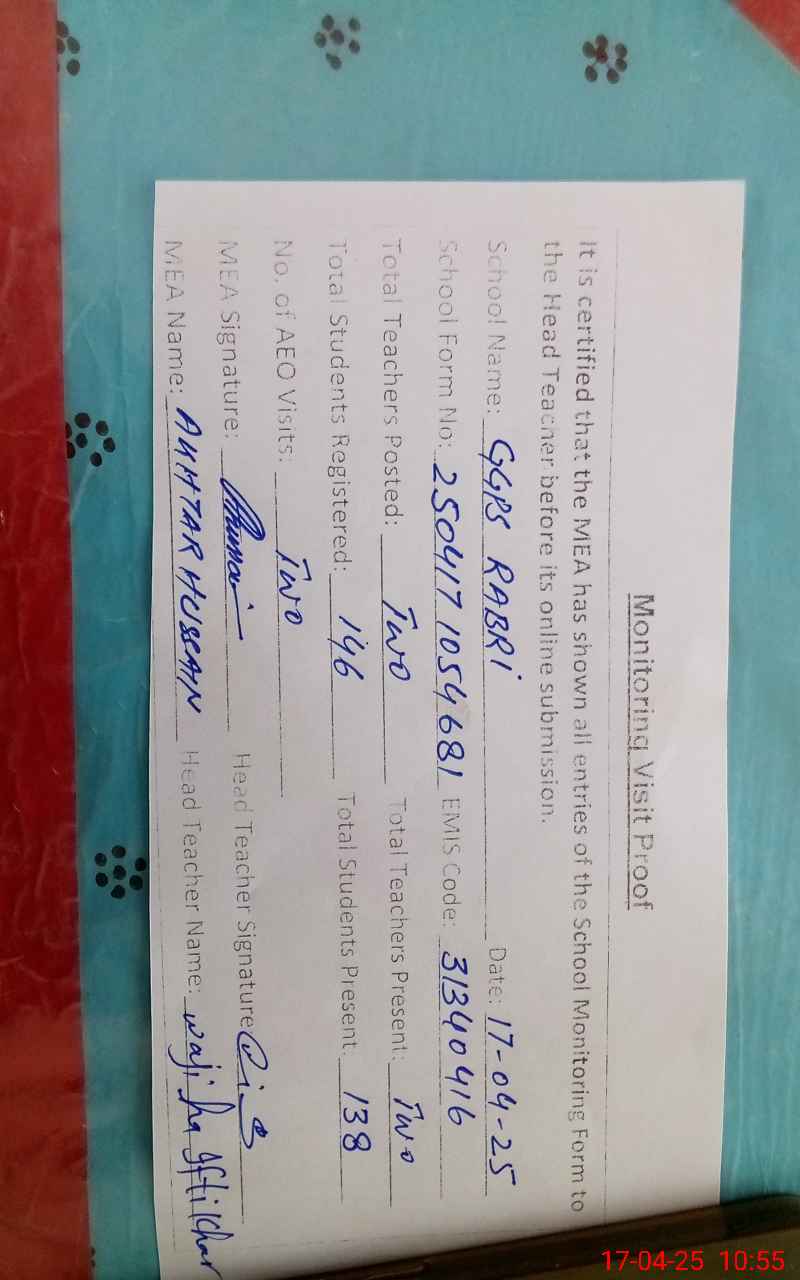 Monitoring Visit Proof
It is certified that the MEA has shown all entries of the School Monitoring Form to
the Head Teacher before its online submission.
School Name: GGPS RABRI Date: 17-04-25
School Form No: 250417 1054681 EMIS Code: 31340416
Total Teachers Posted: Two Total Teachers Present: Two
Total Students Registered: 146 Total Students Present: 138
No. of AEO Visits: Two
MEA Signature: Head Teacher Signature
MEA Name: AKHTAR HUSSAIN Head Teacher Name: wajiha Iftikhar
17-04-25 10:55